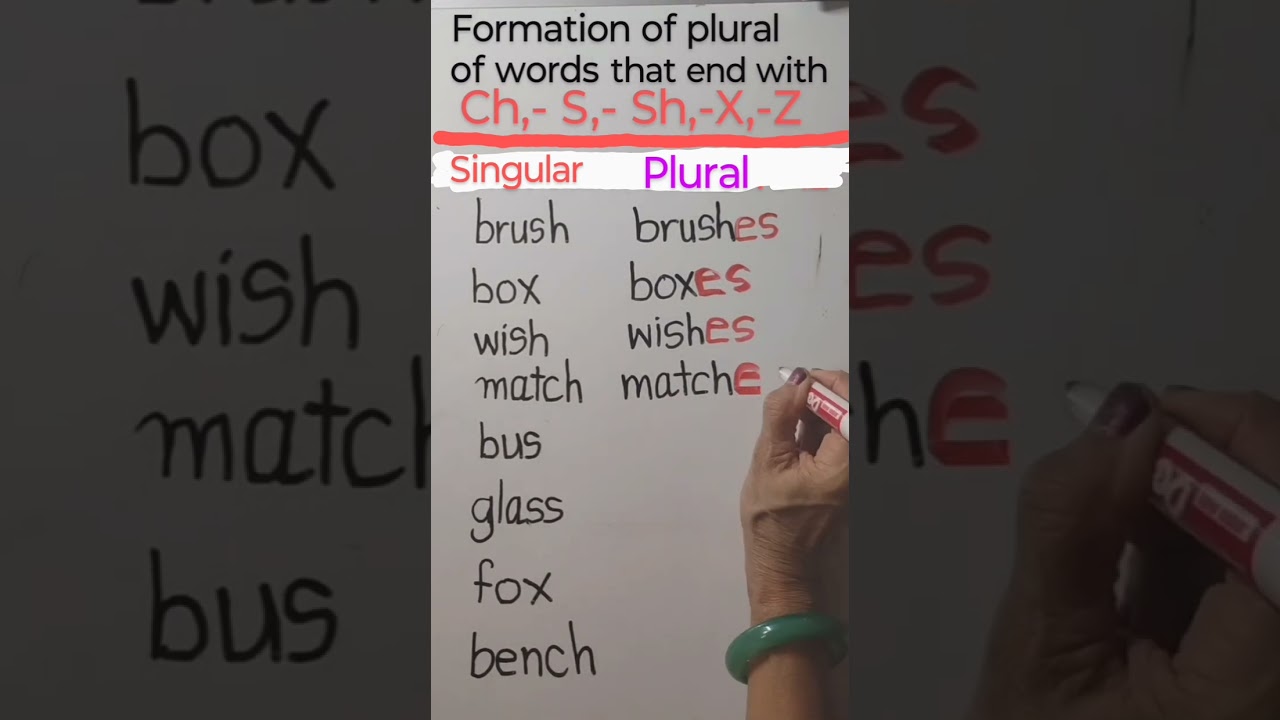 Formation of plural
of words that end with
Ch,- S,- Sh,-X,-Z
Singular Plural
brush brushes
box boxes
wish wishes
match matche
bus
glass
fox
bench